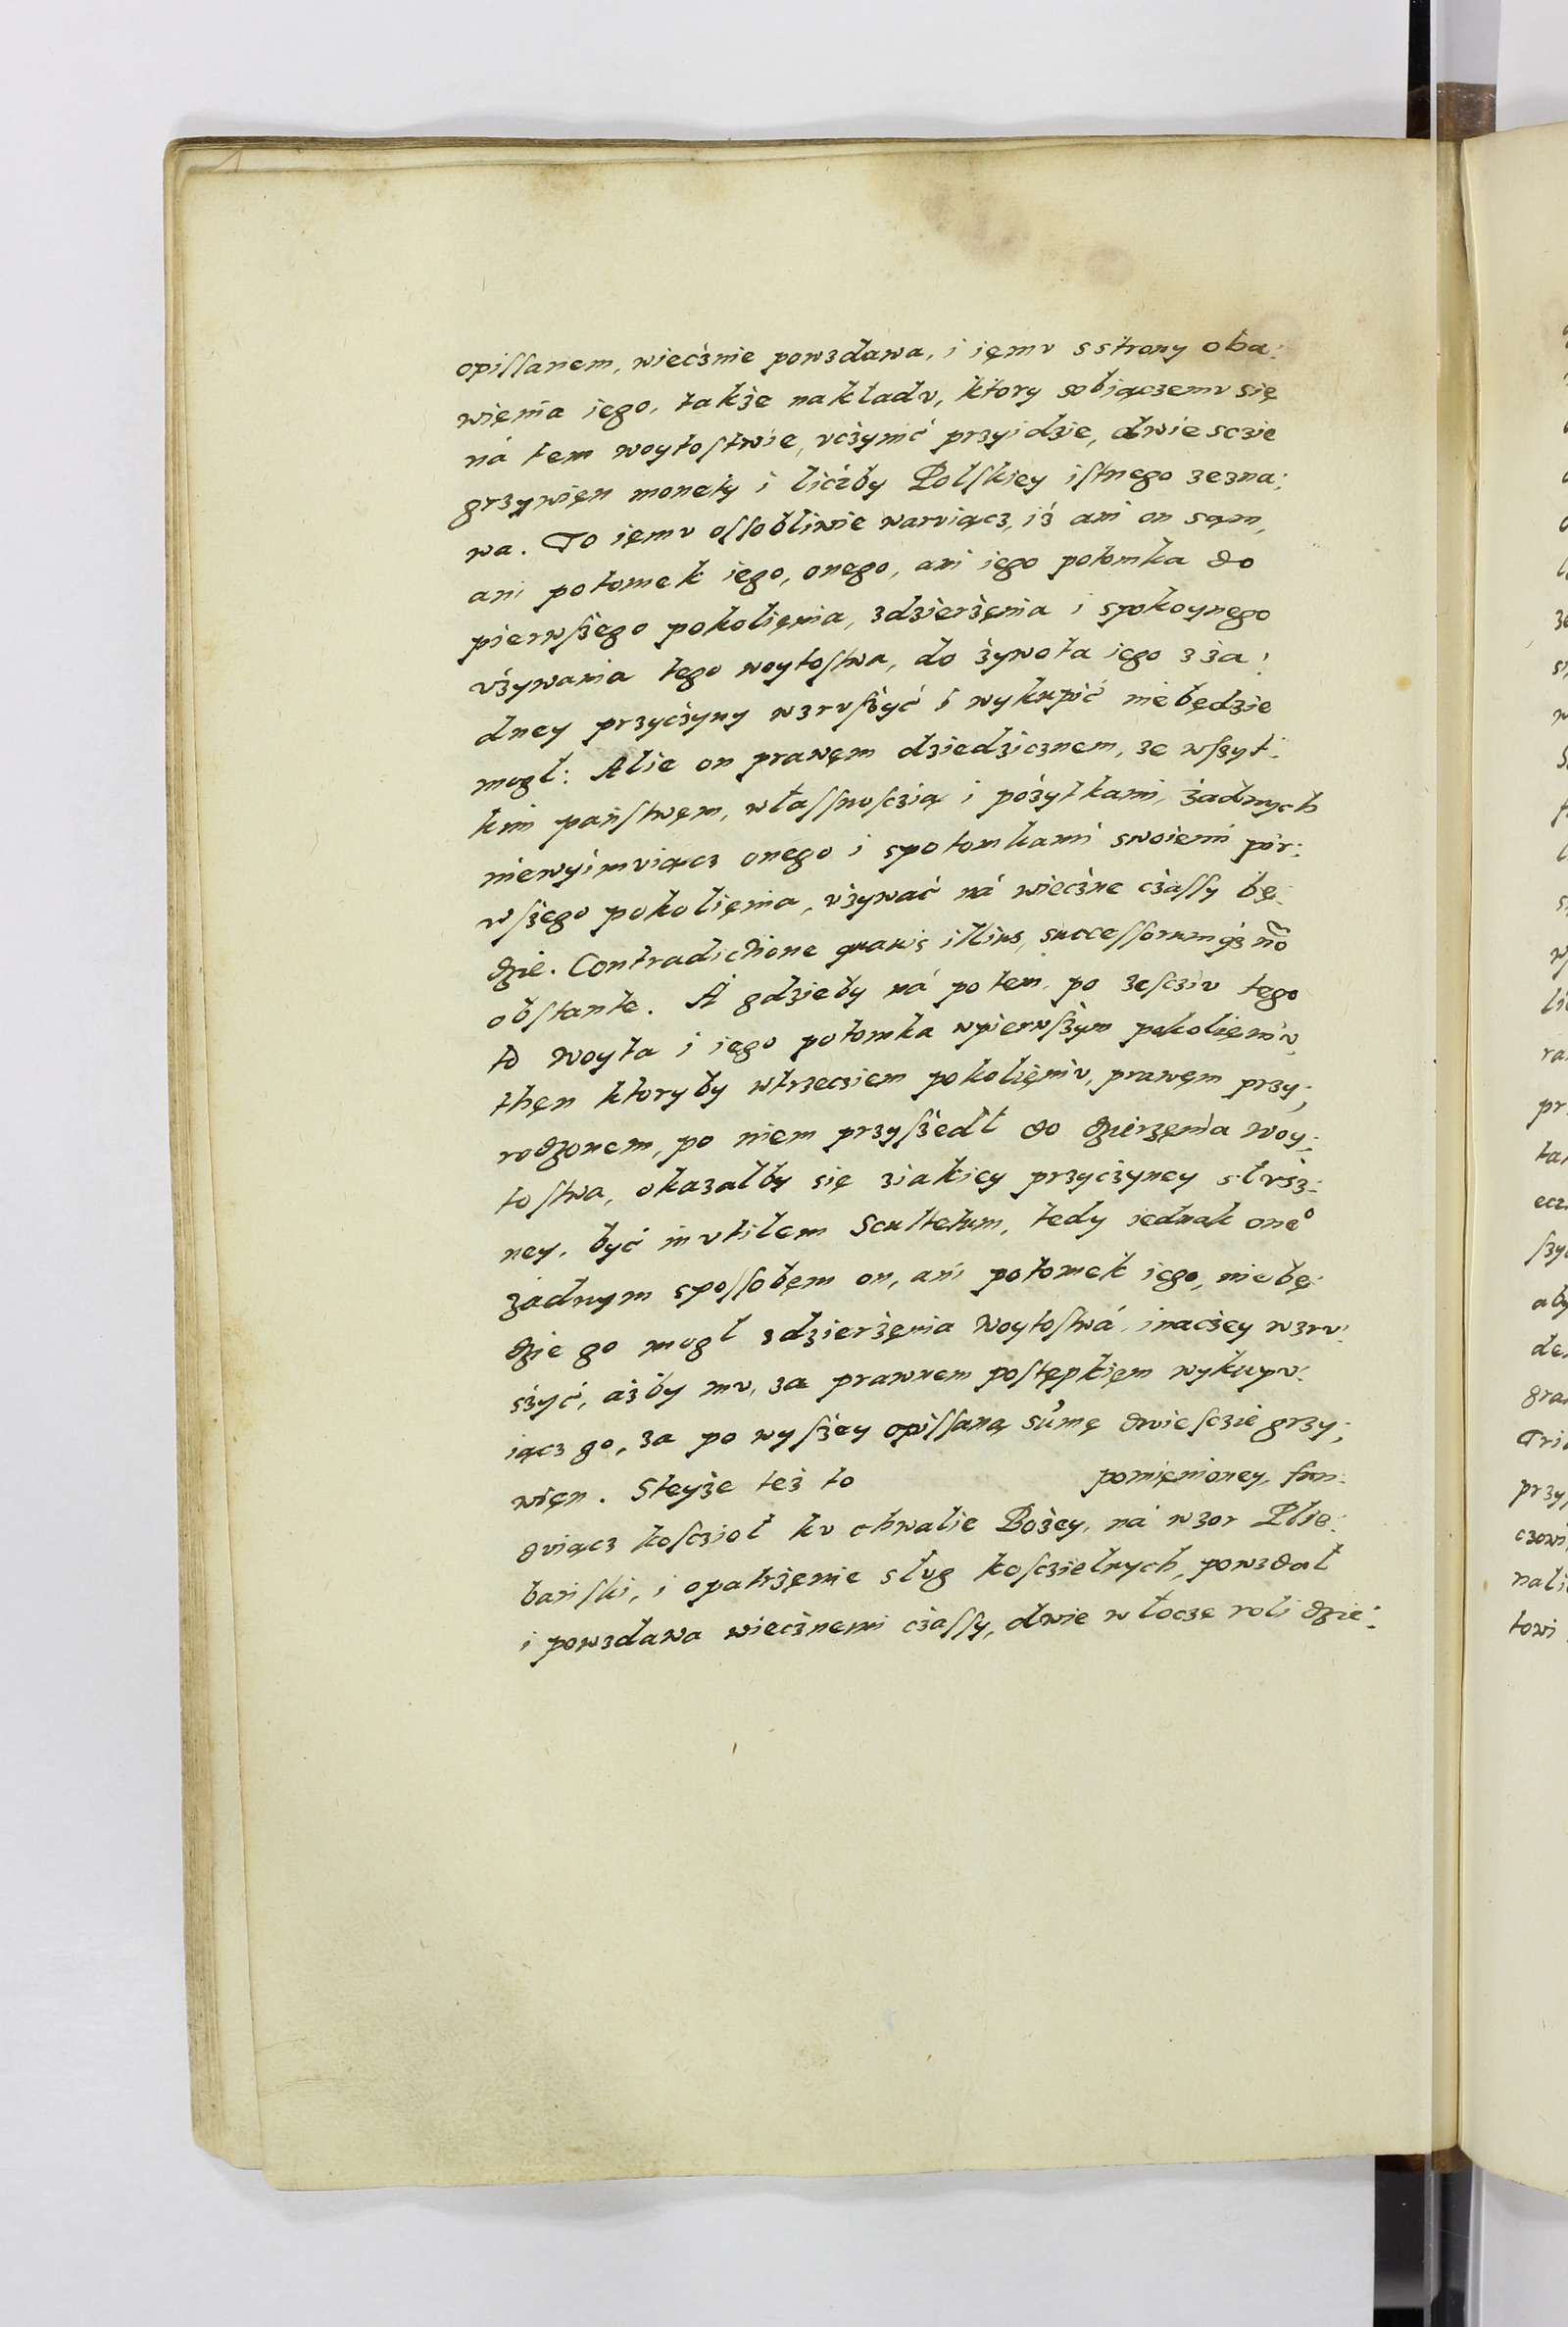 opiſſanem, wiecżnie powzdawa, i ięmv s strony oba:
więnia iego, także nakładv, ktory sobiączemv się
ná tem woytoſtwie, vcżynić przyidzie, dwie sczie
grzywięn monety i licżby Polſkiey iſtnego zezna:
wa. To ięmv oſſobliwie warviącz, iż ani on sąm,
ani potomek iego, onego, ani iego potomka do
pierwſżego pokolięnia, zdzierżęnia i spokoynego
vżywania tego woytoſtwa, do żywota iego z ża:
dney przycżyny wzrvſżyć i wykupić niebędzie
mogł: Alie on prawęm dziedzicznem, ze wſzyt:
kim pańſtwęm, właſſnoſczią i pożytkami, żadnych
niewyimviącz onego i spotomkami swoiemi pir:
wſżego pokolięnia, vżywać ná wiecżne cżaſſy bę:
dzie. Contradictione quavis illius, succeſſorumqȝ nõ
obſtante. A gdzieby ná potem, po zeſcziv tego
to woyta i iego potomka wpierwſżym pokolięniv,
thęn ktoryby wtrzeciem pokolięniv, prawęm przy:
rodzonem, po niem przyſżedł do dzierzęnia woy:
toſtwa, okazałby się ziakiey przycżyney słvsż:
ney, być invtilem Scultetum, tedy iednak oneº
żadnym spoſſobęm on, ani potomek iego, niebę:
dzie go mogł zdzierżęnia woytoſtwá, inacżey wzrv:
sżyć, ażby mv, za prawnem poſtępkięm wykupv:
iącz go, za po wyſżey opiſſaną sumę dwieſczie grzy:
więn. Steyże też to pomięnioney, fun:
dviącz koſcżioł kv chwalie Bożey, ná wzor Plie:
bańſki, i opatrżęnie słvg koſczielnych, powzdał
i powzdawa wiecżnemi cżaſſy, dwie włocze roli dzie: